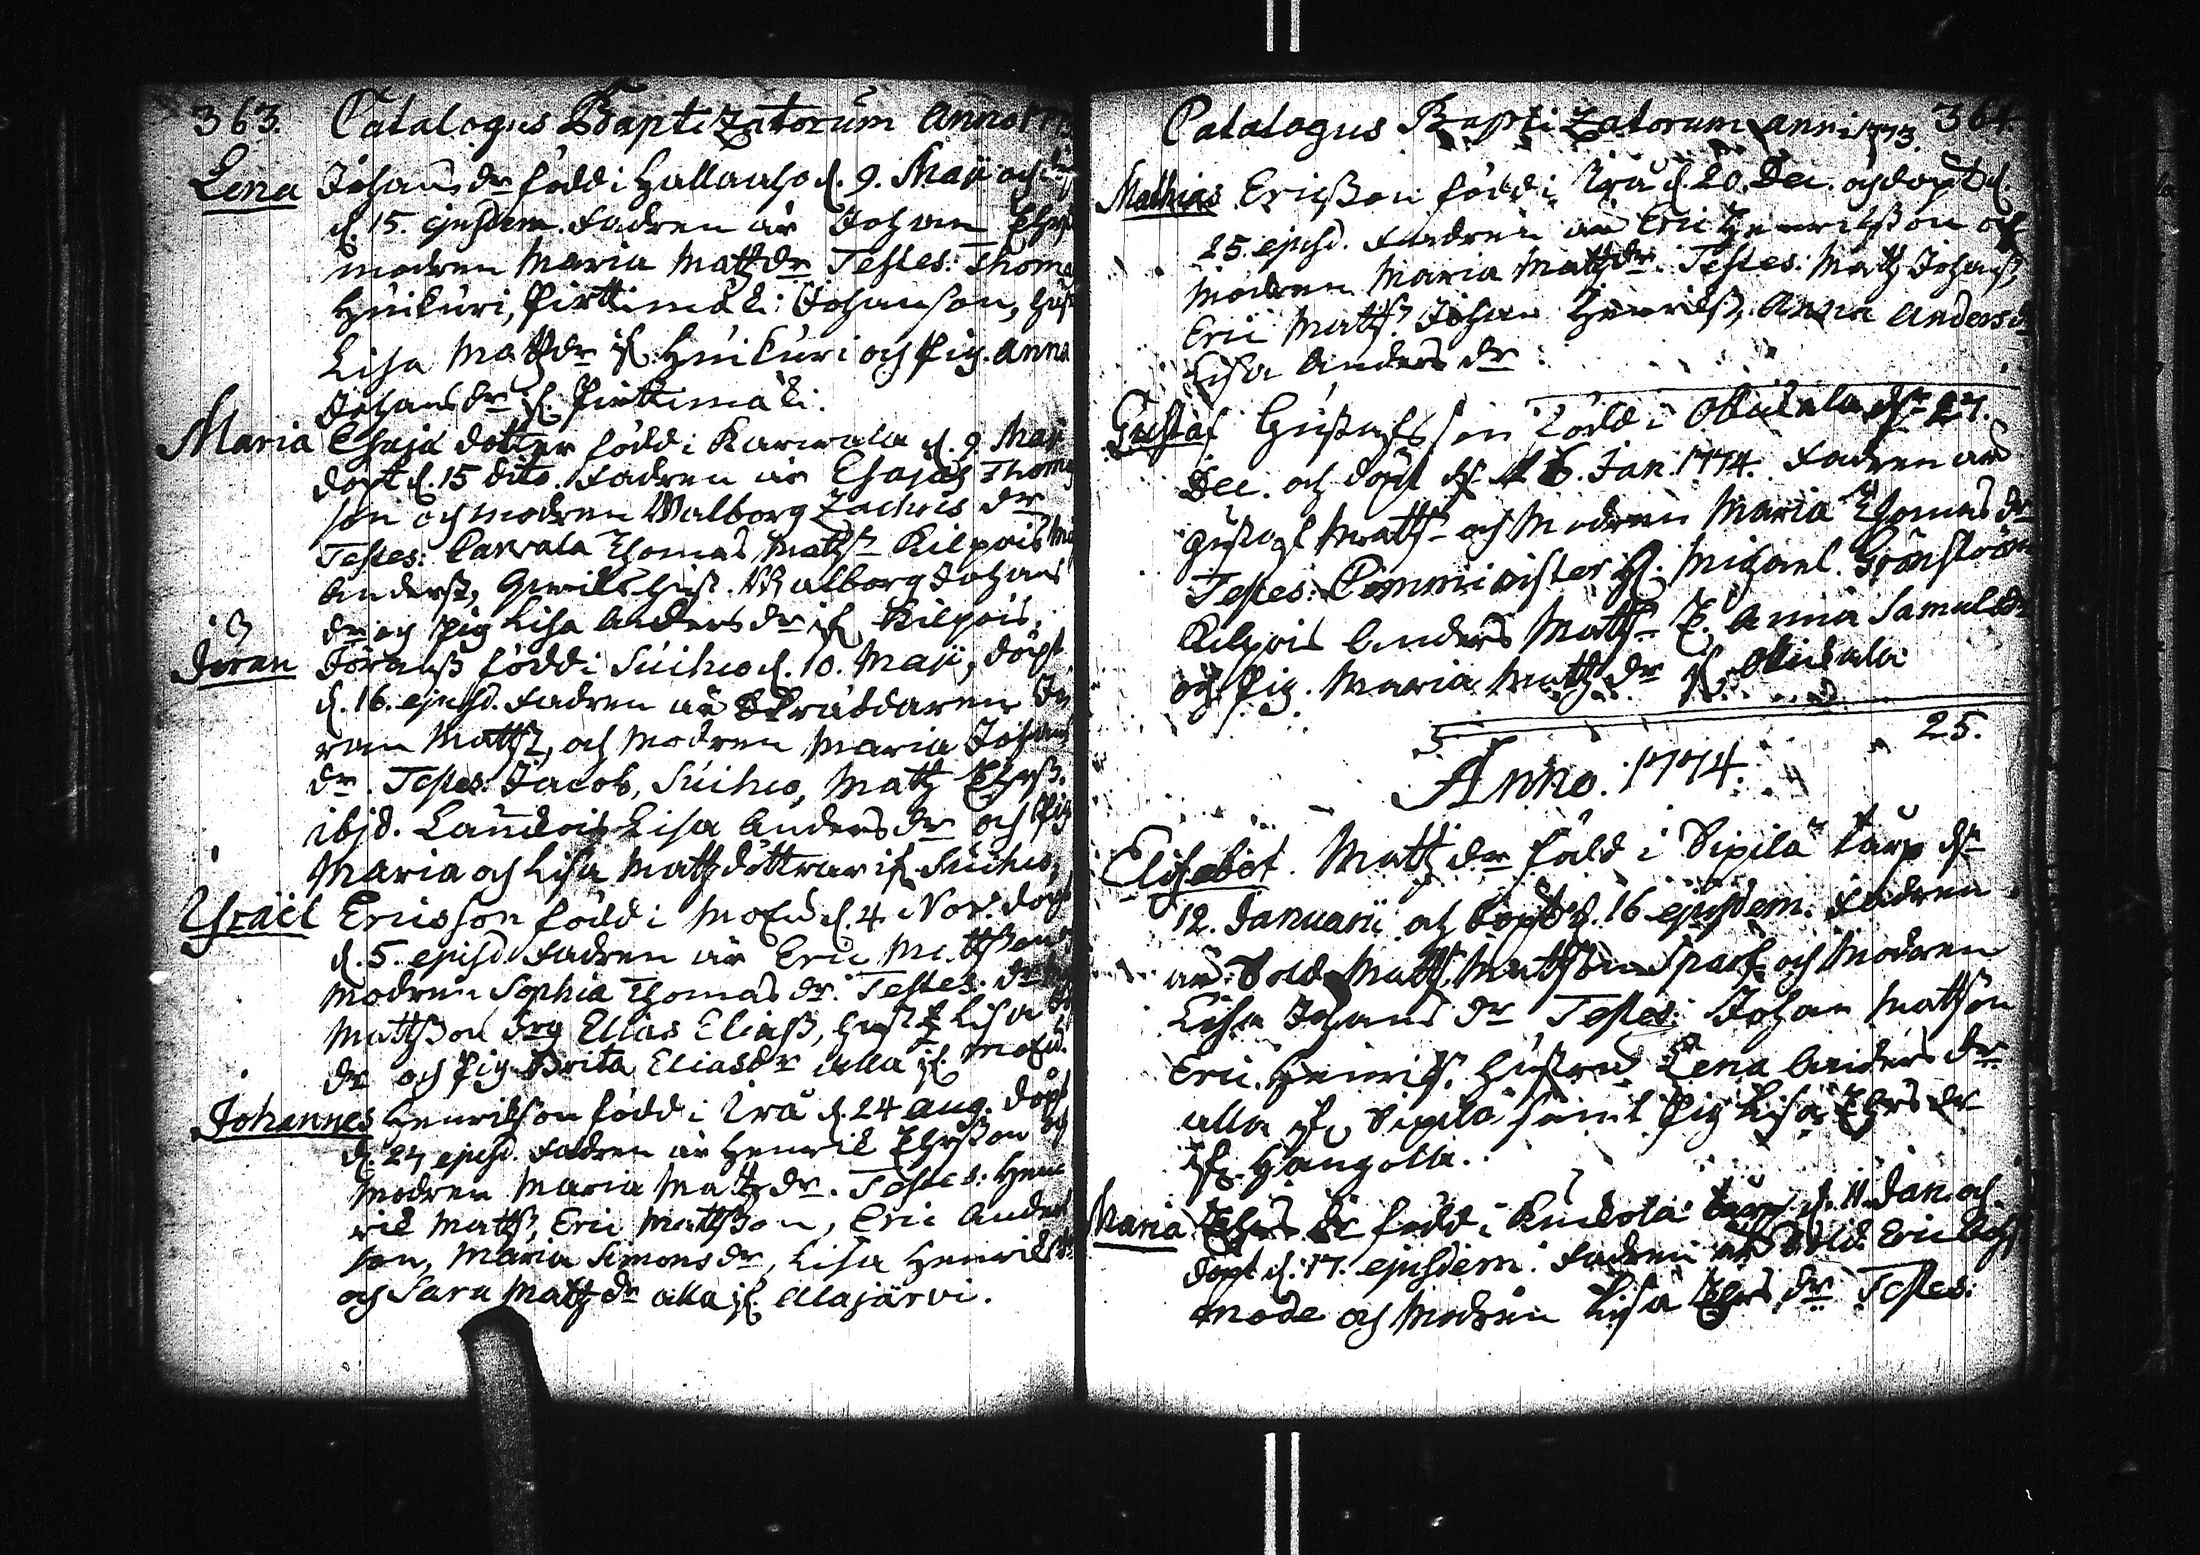 363. Catalogus Baptizatorum Anno 1773
Lena Johansdr född i Hallaaho d. 9. Maji och
d. 15. ejusdem. Fadren är Johan
modren Maria Mattzdr Testes: Thomas
Huikuri, Pirttimäki Johanson, Hust
Lisa Mattzdr if. Huikuri och Pig. Anna
Johansdr if. Pirttimäki.
Maria Esaiæ dotter född i Karwala d. 9 Maji
döpt d. 15 dito. Fadren är Esajas Thomas
son och modren Walborg Zachris dr
Testes: Carvala Thomas Matts. Kilpois
Anderss, Hust. Walborg Johans
dr och Pig Lisa Anders dr if Kilpois.
Jören Jöranss född i Suiho d. 10. Maji, döpt
d. 16. ejusd. Fadren är Skräddaren Jö
ran Mattss, och Modren Maria Johans
dr. Testes: Jacob, Suiho, Matz Ehrss.
ibjd. Lisa Anders dr och Pig
Maria och Lisa Matz döttrar if Suiho,
Ysraël Ericsson född i d. 4. Nov. döpt
d. 5. ejusd. Fadren är Eric Mattsson
Modren Sophia Thomas dr. Testes: dr
Mattsson Drg Elias Eliass, Hust Lisa
dr och Pig Brita Eliasdr alla if.
Johannes Henrikson född i Yrå d. 24 Aug. döpt
d. 27 ejusd. Fadren är Henrik Ehrsson och
Modren Maria Matz dr. Testes: Hen
rik Matts, Eric Mattsson, Eric Anders
son, Maria Simons dr, Lisa Henriks
och Sara Matz dr alla if. Alajärvi.
Catalogus Baptizatorum Anni 1773. 364.
Mathias Ericsson född i Yrå d. 20. Dec. och döpt d.
25. ejusd. Fadren är Eric Henriksson och
Modren Maria Mattzdr. Testes: Matz Johanss,
Eric Matts. Johan Henrikss, Anna Anders dr
Lisa Anders dr
Gustaf Gustafsson född i d. 27.
Dec. och döpt d. 6. Jan. 1774. Fadren är
Gustaf Matts. och Modren Maria Thomas dr
Testes: Comminister H. Michael Grönström
Kilpois Anders Matts. Anna Samuels
och Pig. Maria Matz dr if
25.
Anno. 1774.
Elisabet. Mattz dr född i Sipilä torp d.
12. Januarii och döpt d. 16. ejusdem. Fadren
är Sold Matts Mattson Sparf och Modren
Lisa Johans dr Testes: Johan Matson
Eric. Henriks. Hustru Lena Anders dr
alla if Sipilä samt Pig Lisa Ehrs dr
if. Hangolla.
Maria Ehrs dr född i torp d. 11. Jan. och
döpt d. 17. ejusdem. Fadren är Sold. Eric
Mode och Modren Lisa Ehrs dr Testes: